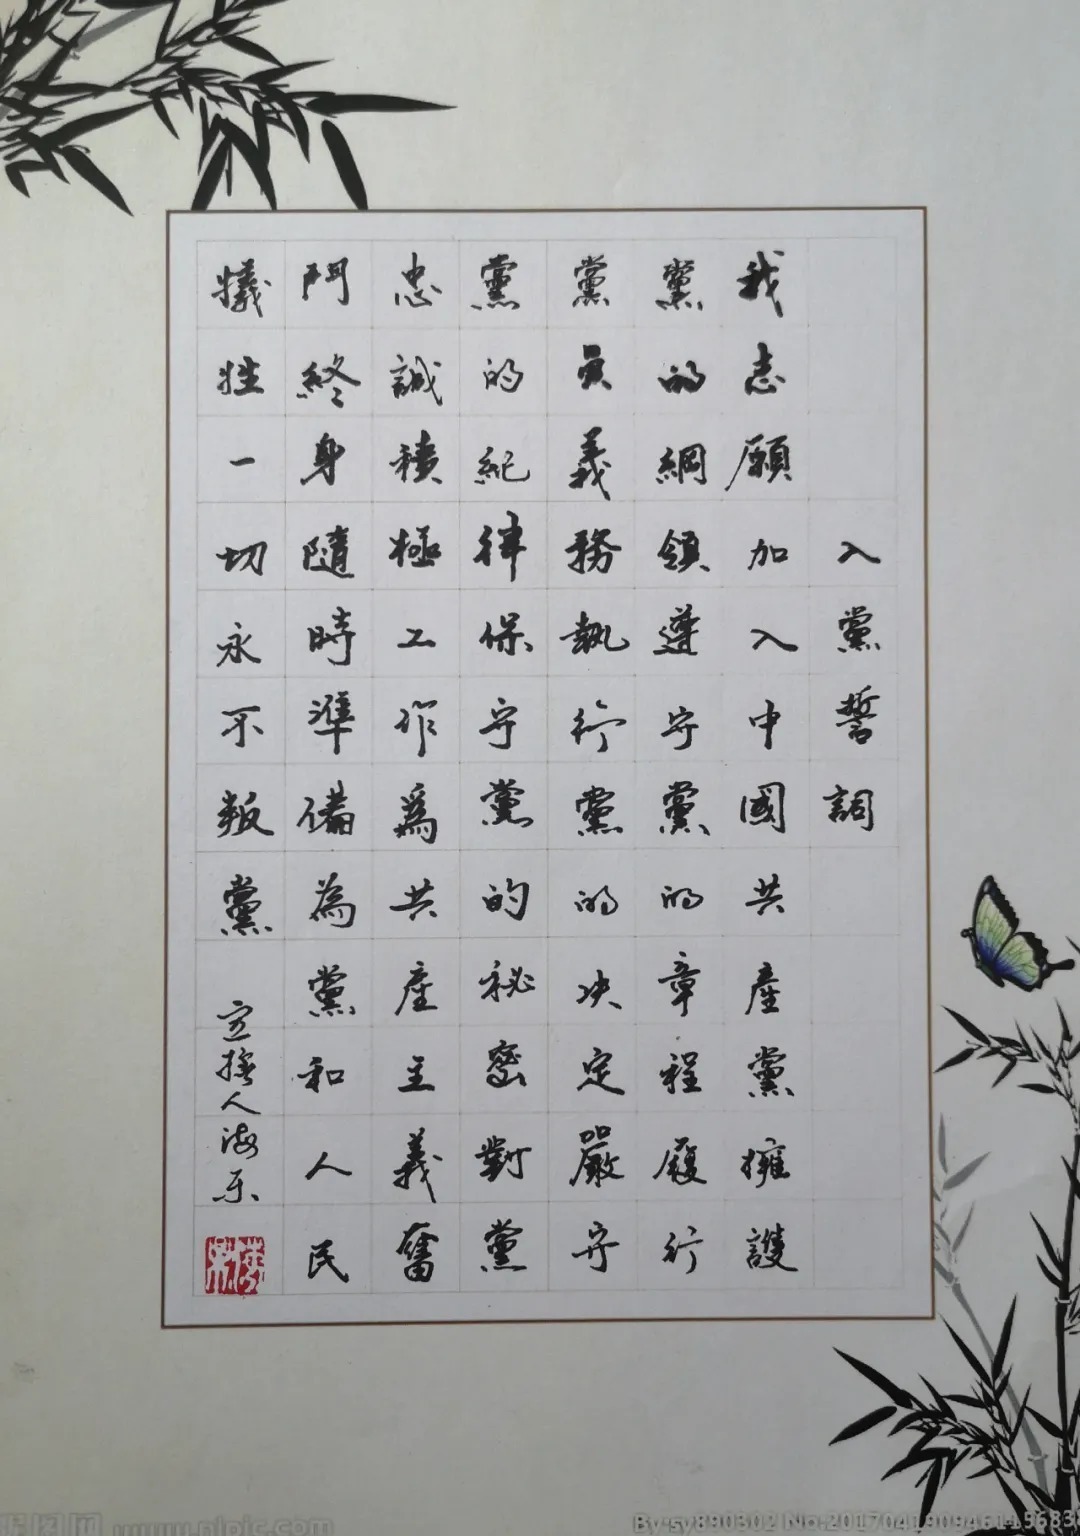 入黨誓詞
我志願加入中國共產黨擁護
黨的綱領遵守黨的章程履行
黨員義務執行黨的决定嚴守
黨的紀律保守黨的秘密對黨
忠誠積極工作為共產主義奮
鬥終身隨時準備為黨和人民
犧牲一切永不叛黨
人海
昵图网 www.nipic.com
By:sy890302 No:201704190946115683